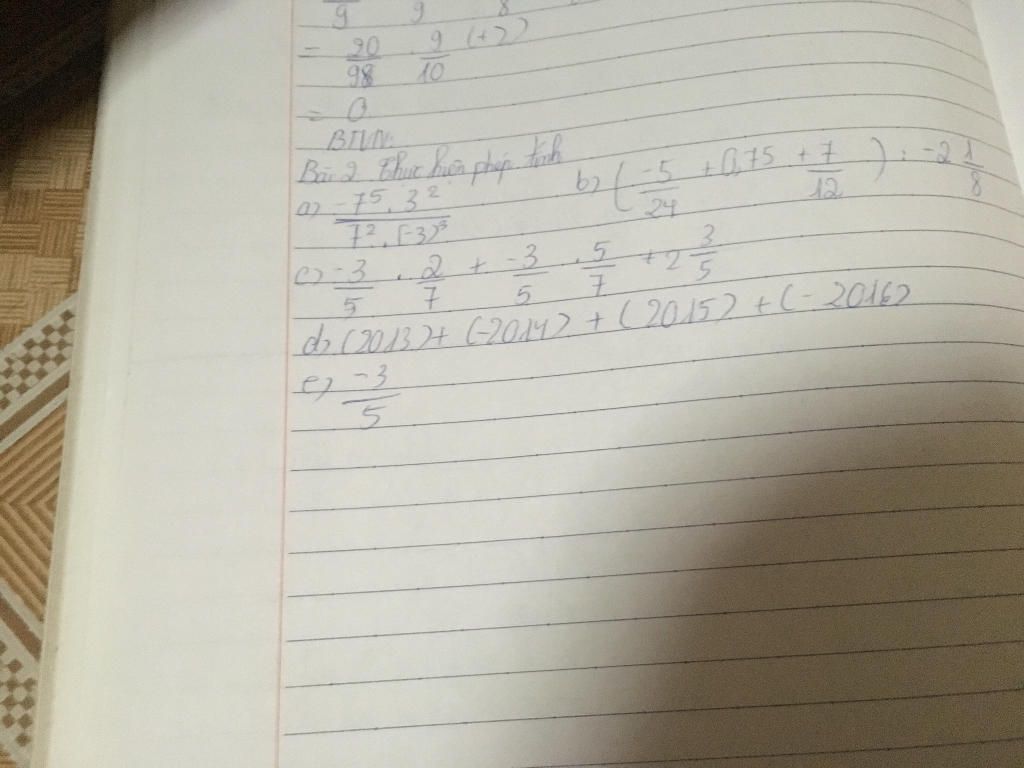 9 9 8
= 20/98 · 9/10 (+2)
= 0
BTVN:
Bài 2 thực hiện phép tính
a) -7⁵ . 3² / 7² . (-3)³ b) (-5/24 + 0,75 + 7/12) : -2 1/8
c) -3/5 . 2/7 + -3/5 . 5/7 + 2 3/5
d) (2013) + (-2014) + (2015) + (-2016)
e) -3/5